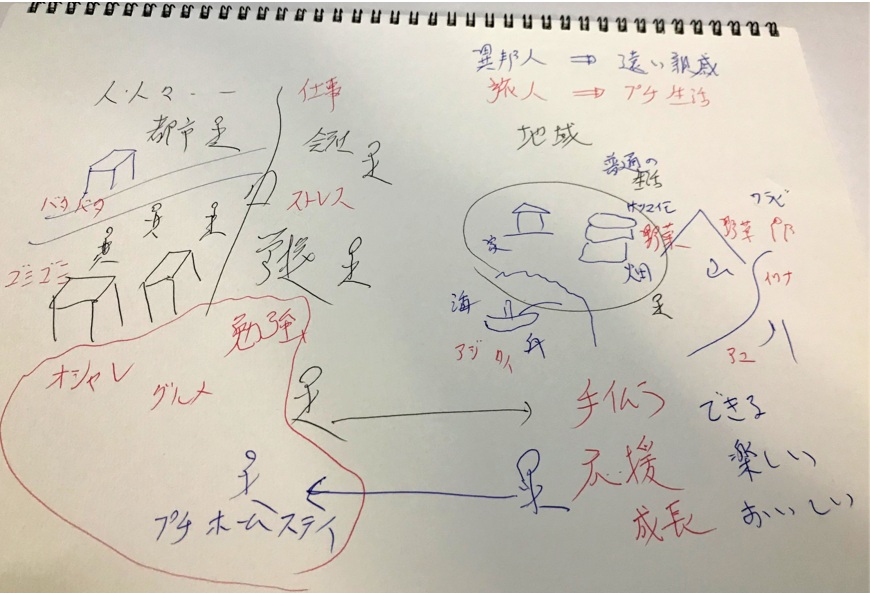 異邦人 ⇒ 遠い親戚
旅人 ⇒ プチ生活
人・人々・ー
仕事
都市
会社
地域
バタバタ
ストレス
普通の
生活
家
野菜
畑
野菜
山
ワラビ
イワナ
川
アユ
ゴミゴミ
学校
海
アジ
勉強
オシャレ
グルメ
手伝う できる
応援 楽しい
成長 おいしい
プチホームステイ